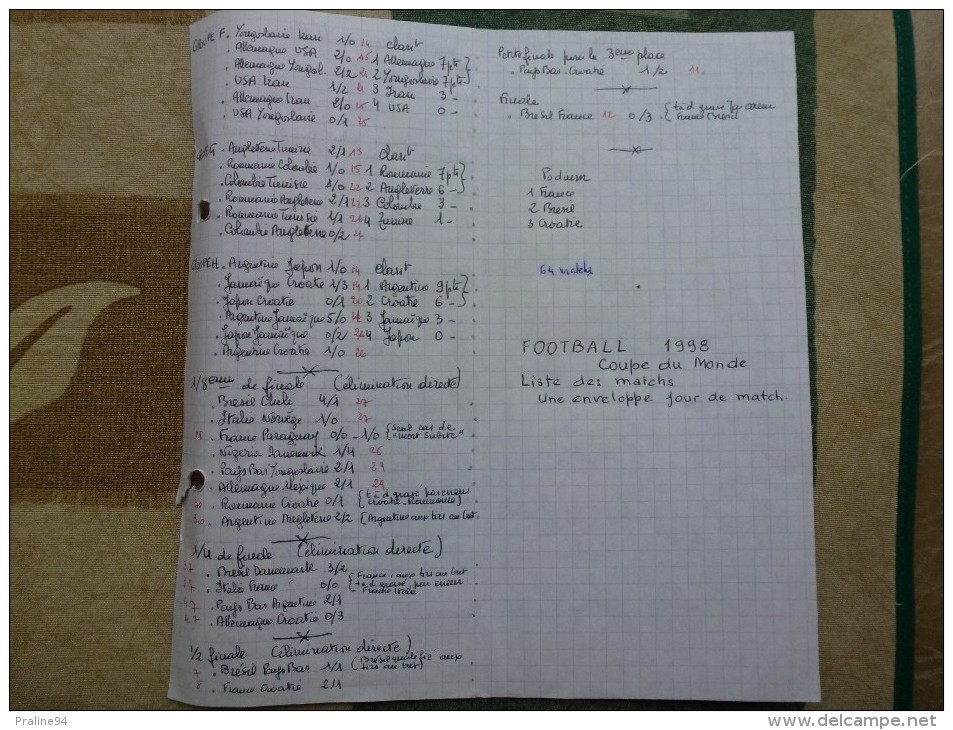 GROUPE F. Yougoslavie Iran 1/0 14 clast
. Allemagne USA 2/0 15 1 Allemagne 7 pts
. Allemagne Yougosl. 2/2 21 2 Yougoslavie 7 pts
. USA Iran 1/2 21 3 Iran 3 -
. Allemagne Iran 2/0 25 4 USA 0 -
. USA Yougoslavie 0/1 25
G. Angleterre Tunisie 2/1 15 clast
. Roumanie Colombie 1/0 15 1 Roumanie 7 pts
. Colombie Tunisie 1/0 22 2 Angleterre 6 -
. Roumanie Angleterre 2/1 22 3 Colombie 3 -
. Roumanie Tunisie 1/1 26 4 Tunisie 1 -
. Colombie Angleterre 0/2 26
GROUPE H. Argentine Japon 1/0 14 clast
. Jamaïque Croatie 1/3 14 1 Argentine 9 pts
. Japon Croatie 0/1 20 2 Croatie 6 -
. Argentine Jamaïque 5/0 21 3 Jamaïque 3 -
. Japon Jamaïque 0/2 26 4 Japon 0 -
. Argentine Croatie 1/0 26
1/8eme de finale (élimination directe)
. Bresil Chili 4/1 27
. Italie Norvège 1/0 27
28 . France Paraguay 0/0 - 1/0 (seul cas de "mort subite"
. Nigeria Danemark 1/4 28
. Pays Bas Yougoslavie 2/1 29
. Allemagne Mexique 2/1 29
30 . Roumanie Croatie 0/1 (t à d gravé par erreur Croatie-Roumanie)
30 . Argentine Angleterre 2/2 (Argentine aux tirs au but.
1/4 de finale (élimination directe)
3.7 . Bresil Danemark 3/2
3.7 . Italie France 0/0 (France, aux tirs au but t à d gravé, par erreur France Italie
4.7 . Pays Bas Argentine 2/1
4.7 . Allemagne Croatie 0/3
1/2 finale (élimination directe)
7 . Brésil Pays Bas 1/1 (Brésil qualifié aux tirs au but)
8 . France Croatie 2/1
Petite finale pour la 3eme place
. Pays Bas Croatie 1/2 11.
Finale
. Brésil France 12 0/3 (t à d gravé France Bresil
Podium
1 France
2 Bresil
3 Croatie
64 matchs
FOOTBALL 1998
Coupe du Monde
Liste des matchs
Une enveloppe jour de match
Praline94
delcampe.net